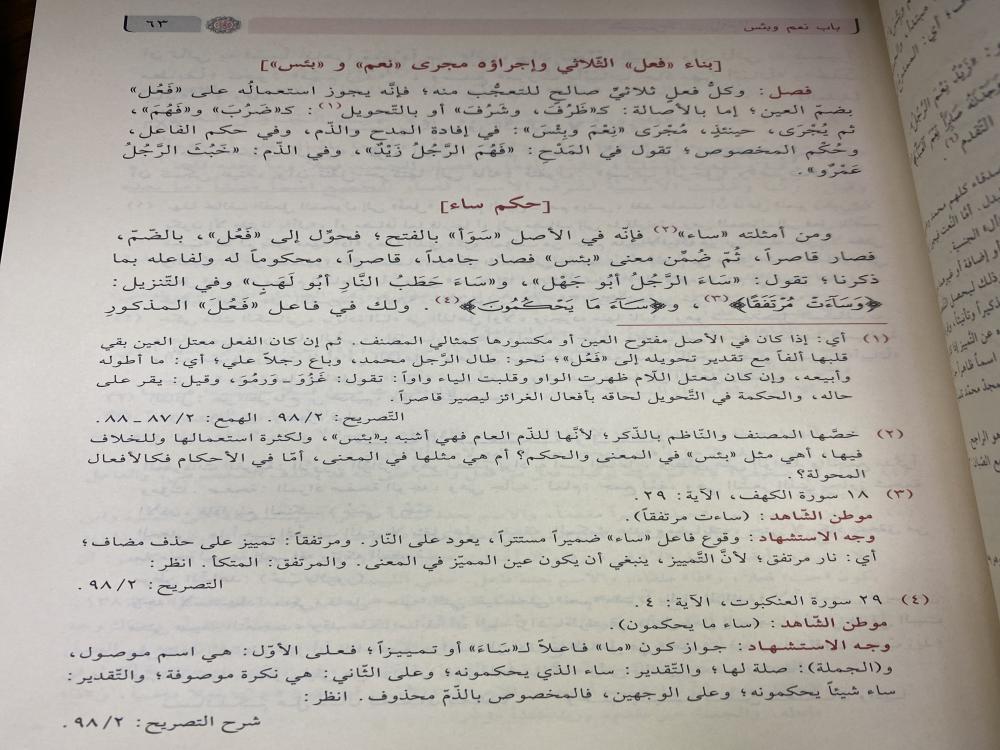 باب نعم وبئس
٦٣
[بناء «فعل» الثّلاثي وإجراؤه مجرى «نعم» و «بئس»]
فصل: وكلُّ فعلٍ ثلاثيٍّ صالحٍ للتعجُّب منه؛ فإنَّه يجوز استعمالُه على «فَعُل»
بضمّ العين؛ إما بالأصالة: كـ«ظَرُفَ، وشَرُفَ» أو بالتّحويل(١): كـ«ضَرُبَ» و«فَهُمَ»،
ثم يُجْرَى، حينئذٍ، مُجْرَى «نِعْمَ وبِئْسَ»: في إفادة المدح والذّم، وفي حكم الفاعل،
وحُكْم المخصوص؛ تقول في المَدْحِ: «فَهُمَ الرَّجُلُ زَيْدٌ»، وفي الذّم: «خَبُثَ الرَّجُلُ
عَمْرٌو».
[حكم ساء]
ومن أمثلته «ساء»(٢) فإنَّه في الأصل «سَوَأَ» بالفتح؛ فحوِّل إلى «فَعُل»، بالضّمّ،
فصار قاصراً، ثُمّ ضُمِّن معنى «بئس» فصار جامداً، قاصراً، محكوماً له ولفاعله بما
ذكرنا؛ تقول: «سَاءَ الرَّجُلُ أَبُو جَهْلٍ»، و«سَاءَ حَطَبُ النَّارِ أَبُو لَهَبٍ» وفي التّنزيل:
﴿وَسَآءَتْ مُرْتَفَقًا﴾(٣)، و﴿سَآءَ مَا يَحْكُمُونَ﴾(٤). ولك في فاعل «فَعُلَ» المذكورِ
(١) أي: إذا كان في الأصل مفتوح العين أو مكسورها كمثالي المصنف. ثم إن كان الفعل معتل العين بقي
قلبها ألفاً مع تقدير تحويله إلى «فَعُل»؛ نحو: طال الرَّجل محمد، وباع رجلاً علي؛ أي: ما أطوله
وأبيعه، وإن كان معتل اللّام ظهرت الواو وقلبت الياء واواً: تقول: غَزُوَ ـ وَرمُوَ، وقيل: يقر على
حاله، والحكمة في التّحويل لحاقه بأفعال الغرائز ليصير قاصراً.
التّصريح: ٩٨/٢. الهمع: ٨٧/٢ ـ ٨٨.
(٢) خصَّها المصنف والنّاظم بالذّكر؛ لأنَّها للذّم العام فهي أشبه بـ«بئس»، ولكثرة استعمالها وللخلاف
فيها، أهي مثل «بئس» في المعنى والحكم؟ أم هي مثلها في المعنى، أمّا في الأحكام فكالأفعال
المحولة؟.
(٣) ١٨ سورة الكهف، الآية: ٢٩.
موطن الشّاهد: (ساءت مرتفقاً).
وجه الاستشهاد: وقوع فاعل «ساء» ضميراً مستتراً، يعود على النّار. ومرتفقاً: تمييز على حذف مضاف؛
أي: نار مرتفق؛ لأنَّ التَّمييز، ينبغي أن يكون عين المميّز في المعنى. والمرتفق: المتكأ. انظر:
التصريح: ٩٨/٢.
(٤) ٢٩ سورة العنكبوت، الآية: ٤.
موطن الشّاهد: (ساء ما يحكمون).
وجه الاستشهاد: جواز كون «ما» فاعلاً لـ«سَاءَ» أو تمييزاً؛ فعلى الأوّل: هي اسم موصول،
و(الجملة): صلة لها؛ والتّقدير: ساء الذي يحكمونه؛ وعلى الثّاني: هي نكرة موصوفة؛ والتّقدير:
ساء شيئاً يحكمونه؛ وعلى الوجهين، فالمخصوص بالذّمّ محذوف. انظر:
شرح التصريح: ٩٨/٢.